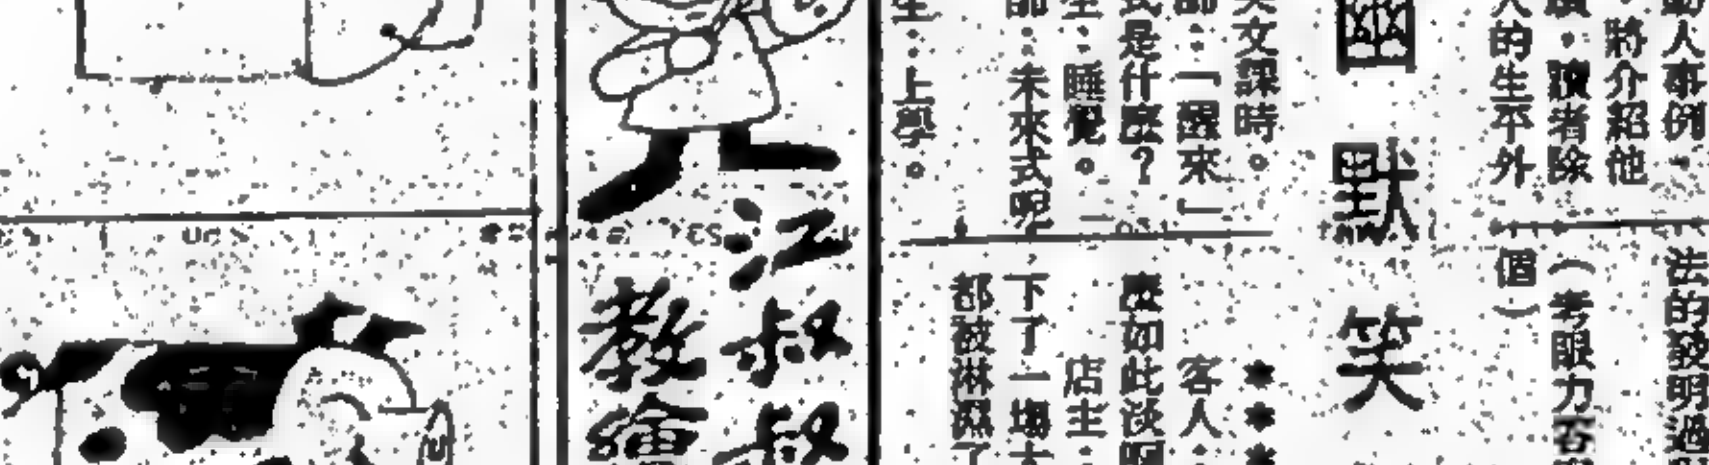 動人事例，
，將介紹他
讀者除
人的生平外
法的發明過
（考眼力
個）
幽默笑
英文課時。
師：「醒來」
式是什麼？
生：睡覺。
師：未來式呢
生：上學。
＊＊＊
客人：
麼如此淡
店主：
下了一場大
都被淋濕了
江叔叔
教繪